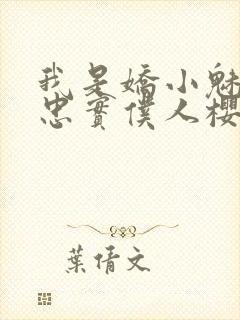 我是嬌小魅
忠實僕人櫻
葉倩文